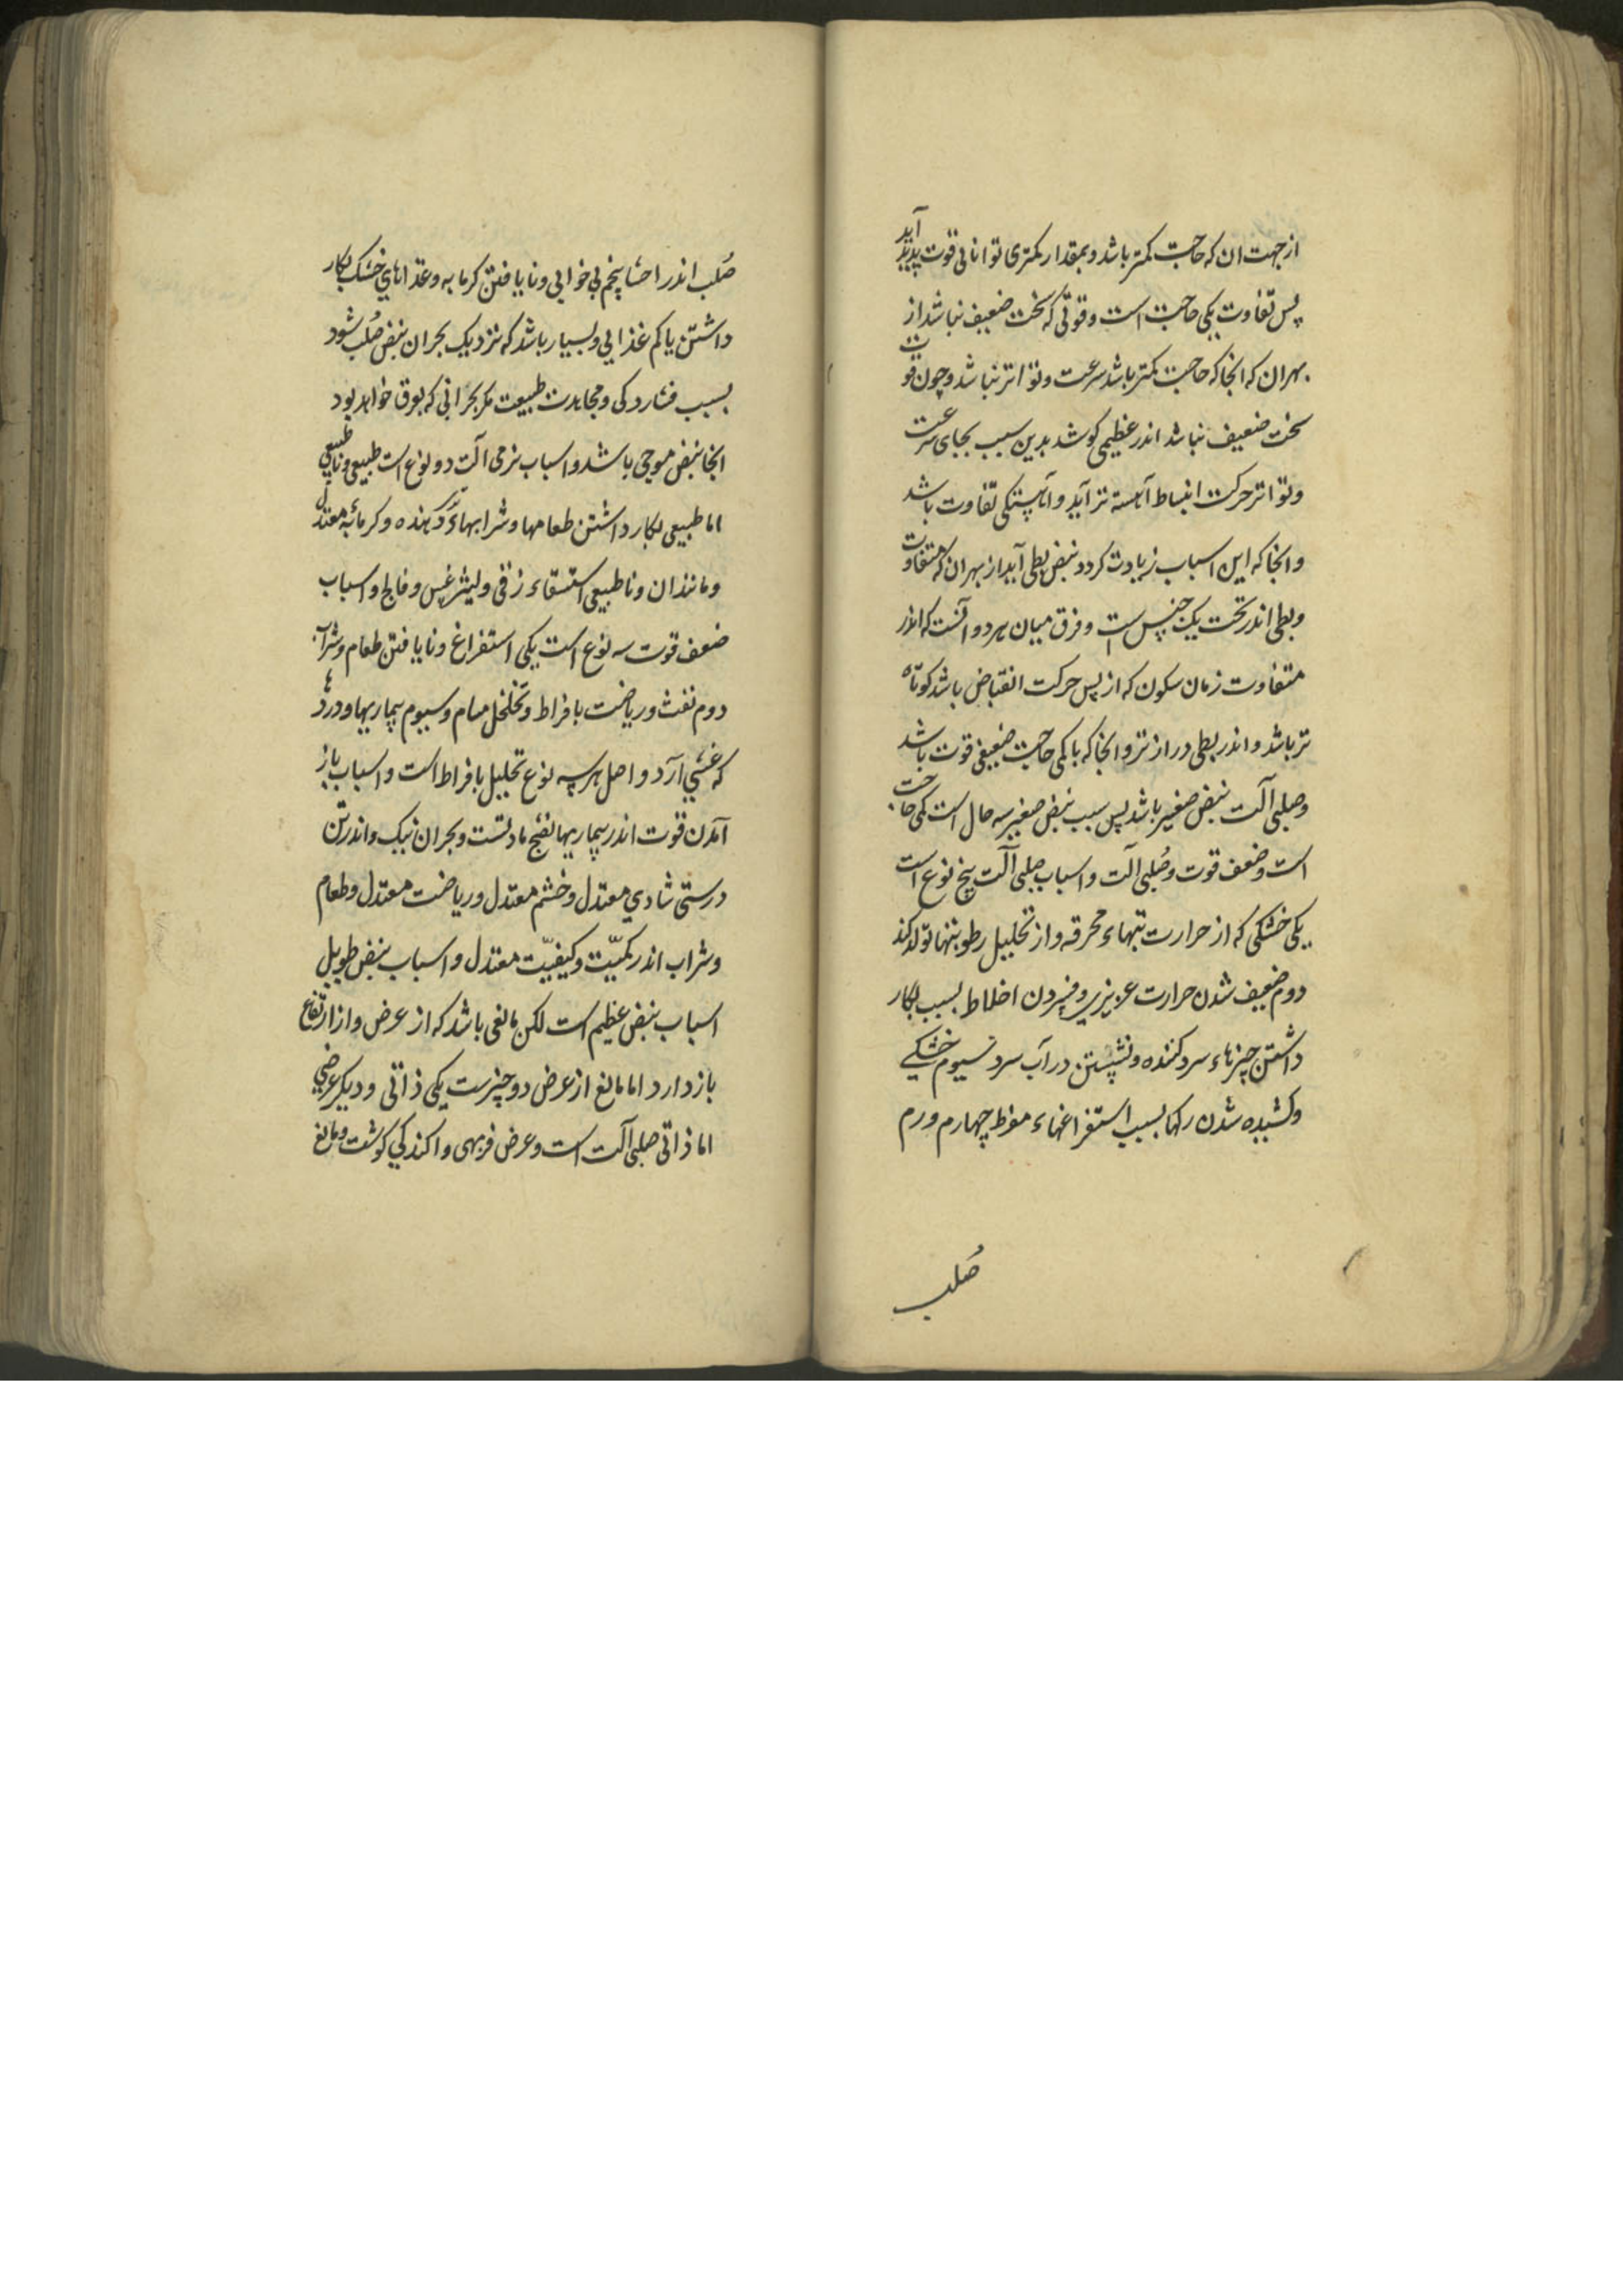 از جهت ان که حاجت کمتر باشد و بمقدار کمتری توانائی قوت پدید آید
پس تفاوت یکی حاجت است و قوتی که سخت ضعیف نباشد از
بهر ان که انجا که حاجت کمتر باشد سرعت و تواتر نباشد و چون قوت
سخت ضعیف نباشد اندر عظیمی کوشد بدین سبب بجای سرعت
و تواتر حرکت انبساط آهسته تر آید و آهستکی تفاوت باشد
و انجا که این اسباب زیادت کردد نبض بطی آید از بهر ان که متفاوت
و بطی اندر تحت یک جنس است و فرق میان هر دو آنست که اندر
متفاوت زمان سکون که از پس حرکت انقباض باشد کوتاه
تر باشد و اندر بطی دراز تر و انجا که با کمی حاجت ضعیفی قوت باشد
و صلبی آلت نبض صغیر باشد پس سبب نبض صغیر سه حال است کمی حاجت
است و ضعف قوت و صُلبی الت و اسباب صلبی آلت پنج نوع است
یکی خشکی که از حرارت تبهاء محرقه و از تحلیل رطوبتها تولد کند
دوم ضعیف شدن حرارت عزیزی و فسردن اخلاط بسبب بکار
داشتن چیزهاء سرد کننده و نشستن در آب سرد سیوم خشکی
و کشیده شدن رکها بسبب استفراغهاء مفرط چهارم ورم
صُلب
صُلب اندر احشا پنجم بی خوابی و نایافتن کرمابه و غذاهای خشک بکار
داشتن یا کم غذایی و بسیار باشد که نزدیک بحران نبض صُلب شود
بسبب فشاردکی و مجاهدت طبیعت مکر بحرانی که بعرق خواهد بود
انجا نبض موجی باشد و اسباب نرمی آلت دو نوع است طبیعی و ناطبیعی
اما طبیعی بکار داشتن طعامها و شرابهاء تری دهنده و کرمابۀ معتدل
و مانند ان و ناطبیعی استسقاء زقی و لیثرغس و فالج و اسباب
ضعف قوت سه نوع است یکی استفراغ و نایافتن طعام و شراب
دوم نفث و ریاضت بافراط و تخلخل مسام و سیوم بیماریها و دردها
که غشی آرد و اصل هر سه نوع تحلیل بافراط است و اسباب باز
آمدن قوت اندر بیماریها نضج مادتست و بحران نیک و اندر تن
درستی شادی معتدل و خشم معتدل و ریاضت معتدل و طعام
و شراب اندر کمیّت و کیفیّت معتدل و اسباب نبض طویل
اسباب نبض عظیم است لکن مانعی باشد که از عرض و از ارتفاع
باز دارد اما مانع از عرض دو چیزست یکی ذاتی و دیکر عرضی
اما ذاتی صلبی آلت است و عرض فربهی و اکندکی کوشت و مانع